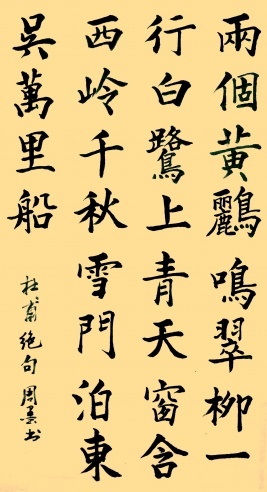 兩個黃鸝鳴翠柳一
行白鷺上青天窗含
西岭千秋雪門泊東
吳萬里船
杜甫绝句周墨书